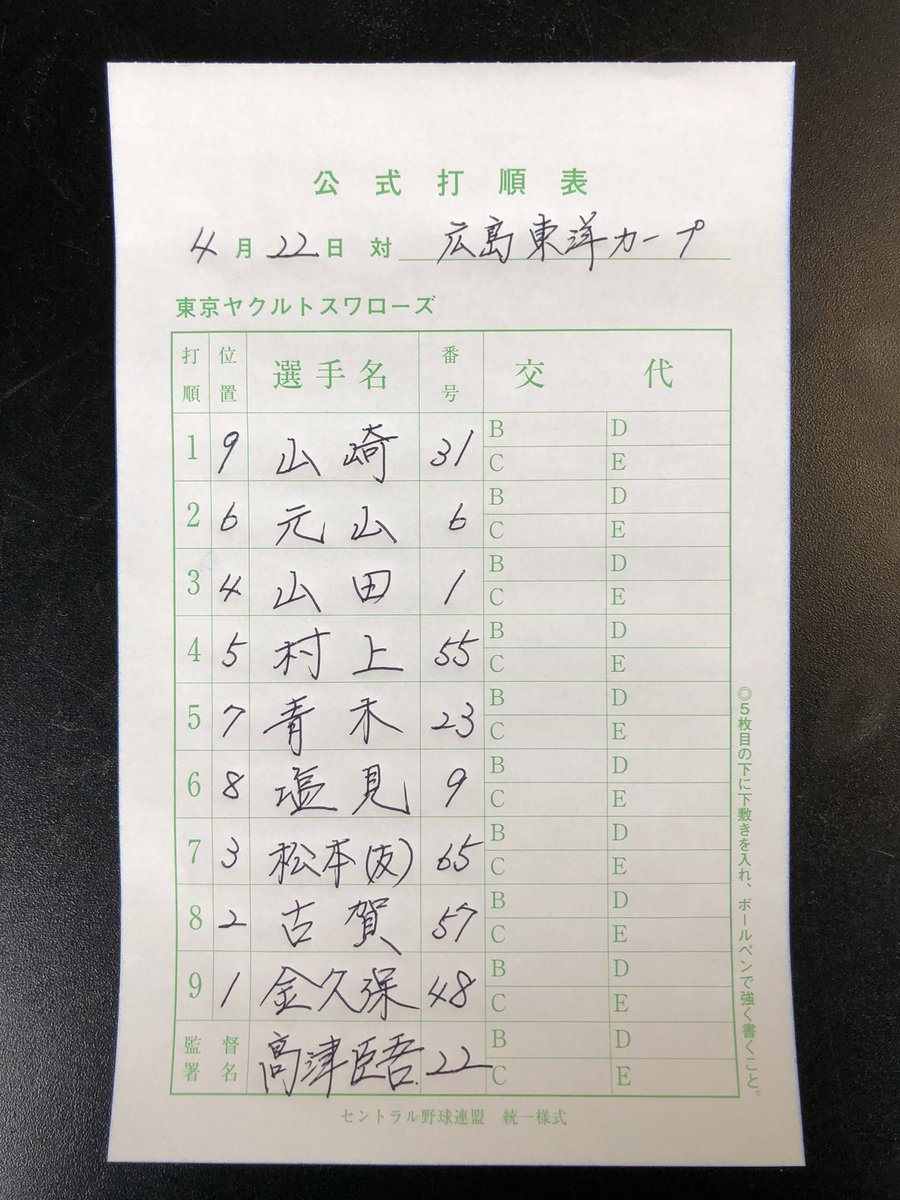 公式打順表
4月22日 対 広島東洋カープ
東京ヤクルトスワローズ
打順 位置 選手名 番号 交代
1 9 山崎 31 B D C E
2 6 元山 6 B D C E
3 4 山田 1 B D C E
4 5 村上 55 B D C E
5 7 青木 23 B D C E
6 8 塩見 9 B D C E
7 3 松本(友) 65 B D C E
8 2 古賀 57 B D C E
9 1 金久保 48 B D C E
監督署名 高津臣吾 22 B D C E
セントラル野球連盟 統一様式
◎5枚目の下に下敷きを入れ、ボールペンで強く書くこと。